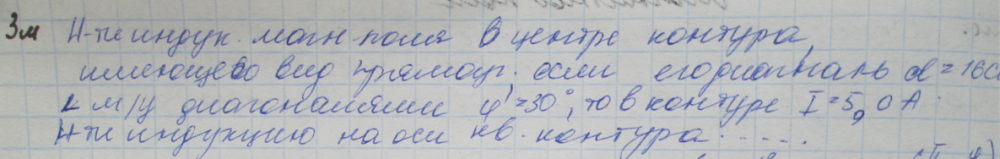 3м Н-ти индук. магн. поля в центре контура,
имеющего вид прямоуг. если его диагональ d = 16с
∠ м/у диагоналями φ = 30°, то в контуре I = 5,0 А
Н-ти индукцию на оси кв. контура .....